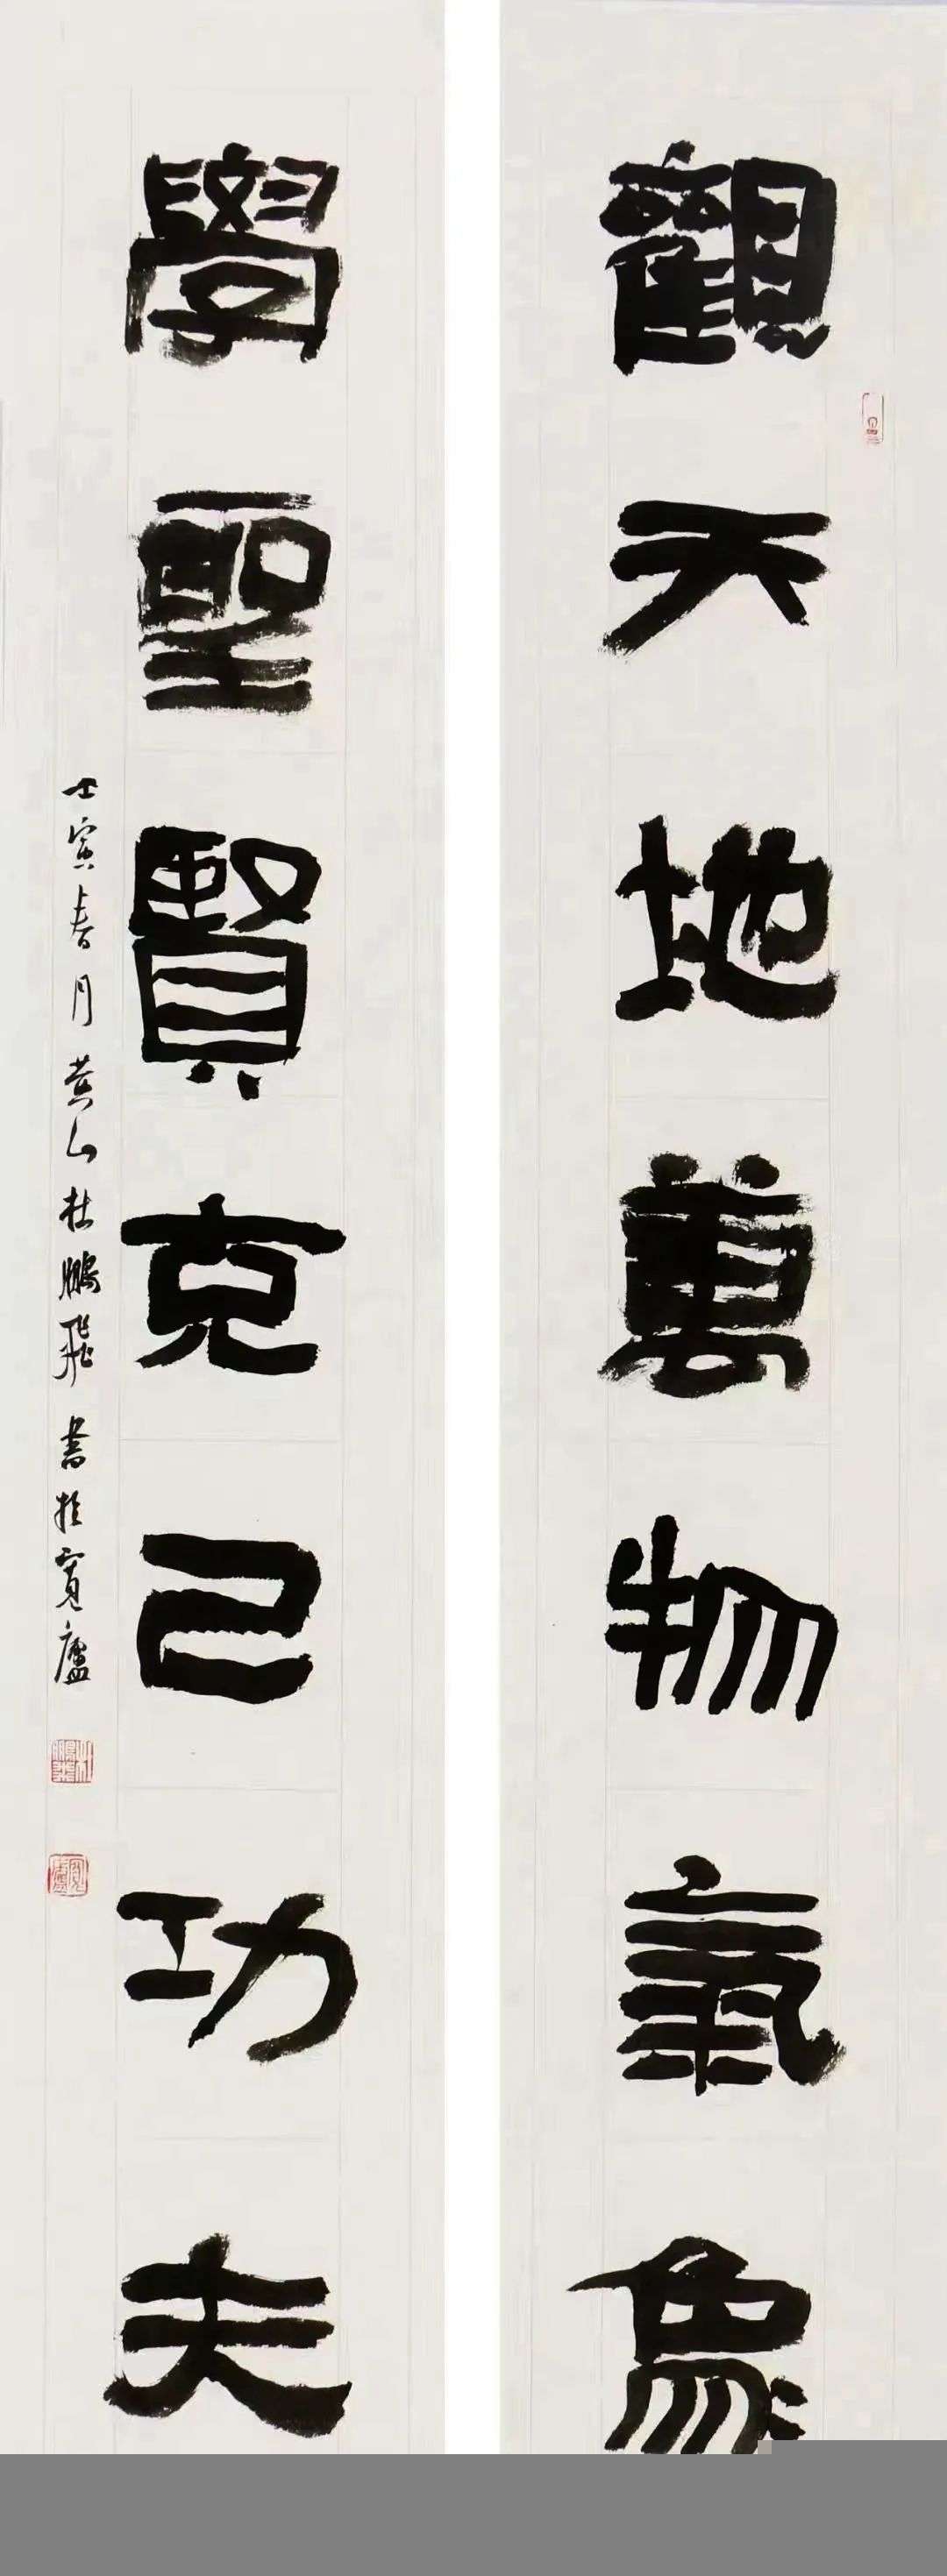 觀天地萬物氣象
學聖賢克己功夫
壬寅春月黄山杜鵬飛書於寬廬